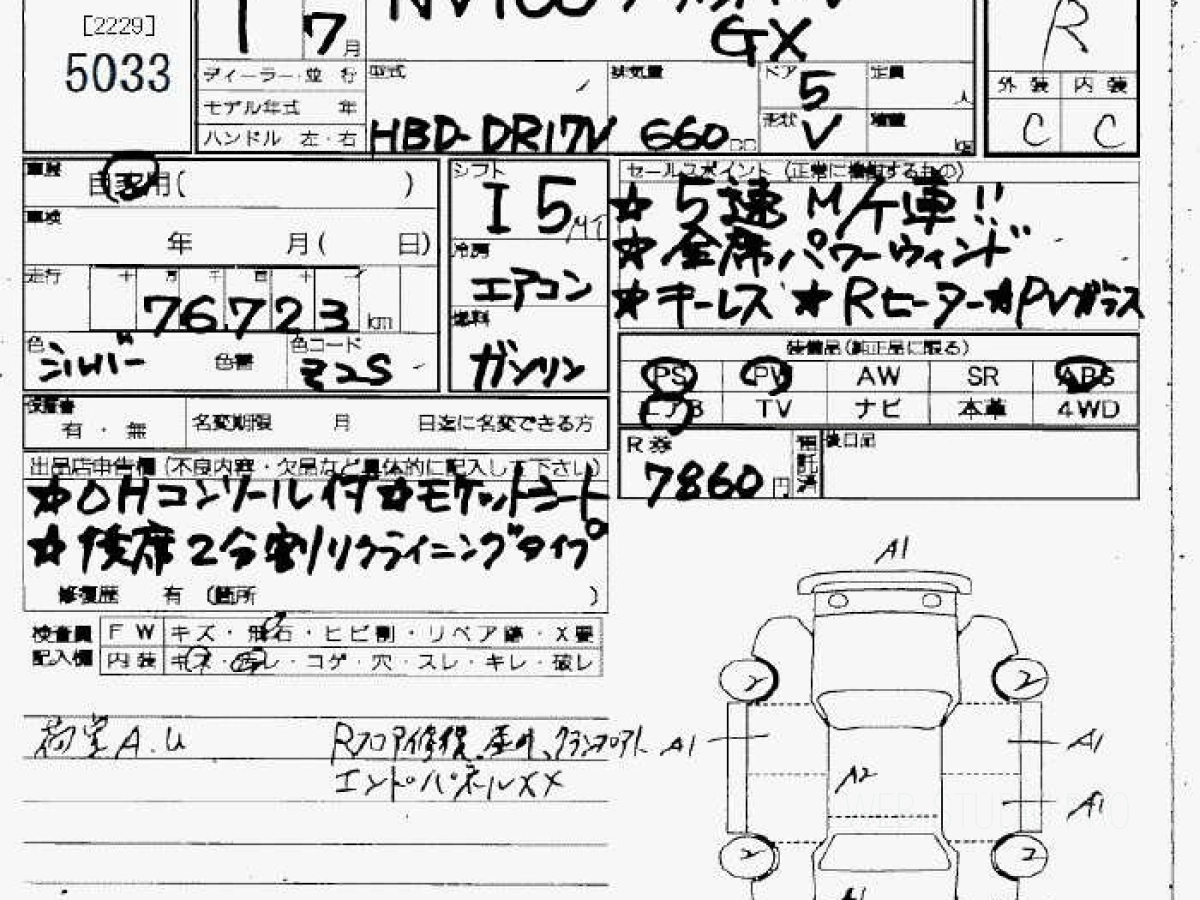 [2229]
5033
7月
GX
R
ディーラー・並 行
型式
排気量
ドア 5
定員 人
外 装 内 装
モデル年式 年
形状 V
積載 kg
C C
ハンドル 左・右
HBD-DR17V 660cc
車歴
自家用( )
シフト
I5 MT
セールスポイント (正常に機能するもの)
★5速M/T車!!
★全席パワーウィンド
★キーレス ★Rヒーター★PVガラス
車検
年 月( 日)
冷房
エアコン
走行
十 万 千 百 十 一
76,723 km
燃料
ガソリン
色
シルバー
色番
色コード
Z2S
装備品(純正品に限る)
PS PW AW SR ABS
エアB TV ナビ 本革 4WD
保証書
有 ・ 無
名変期限 月 日迄に名変できる方
R券
7860円
預託済
後日品
出品店申告欄 (不良内容・欠品など具体的に記入して下さい)
★OHコンソール付★モケットシート
★後席2分割リクライニングタイプ
修復歴 有 (箇所 )
検査員
記入欄
F W キズ・飛石・ヒビ割・リペア跡・X要
内 装 キズ・汚れ・コゲ・穴・スレ・キレ・破レ
荷室A.U
Rフロア修復、
エンドパネルXX
A1
2 2
A1 A1
A2
A1
2 2
A1